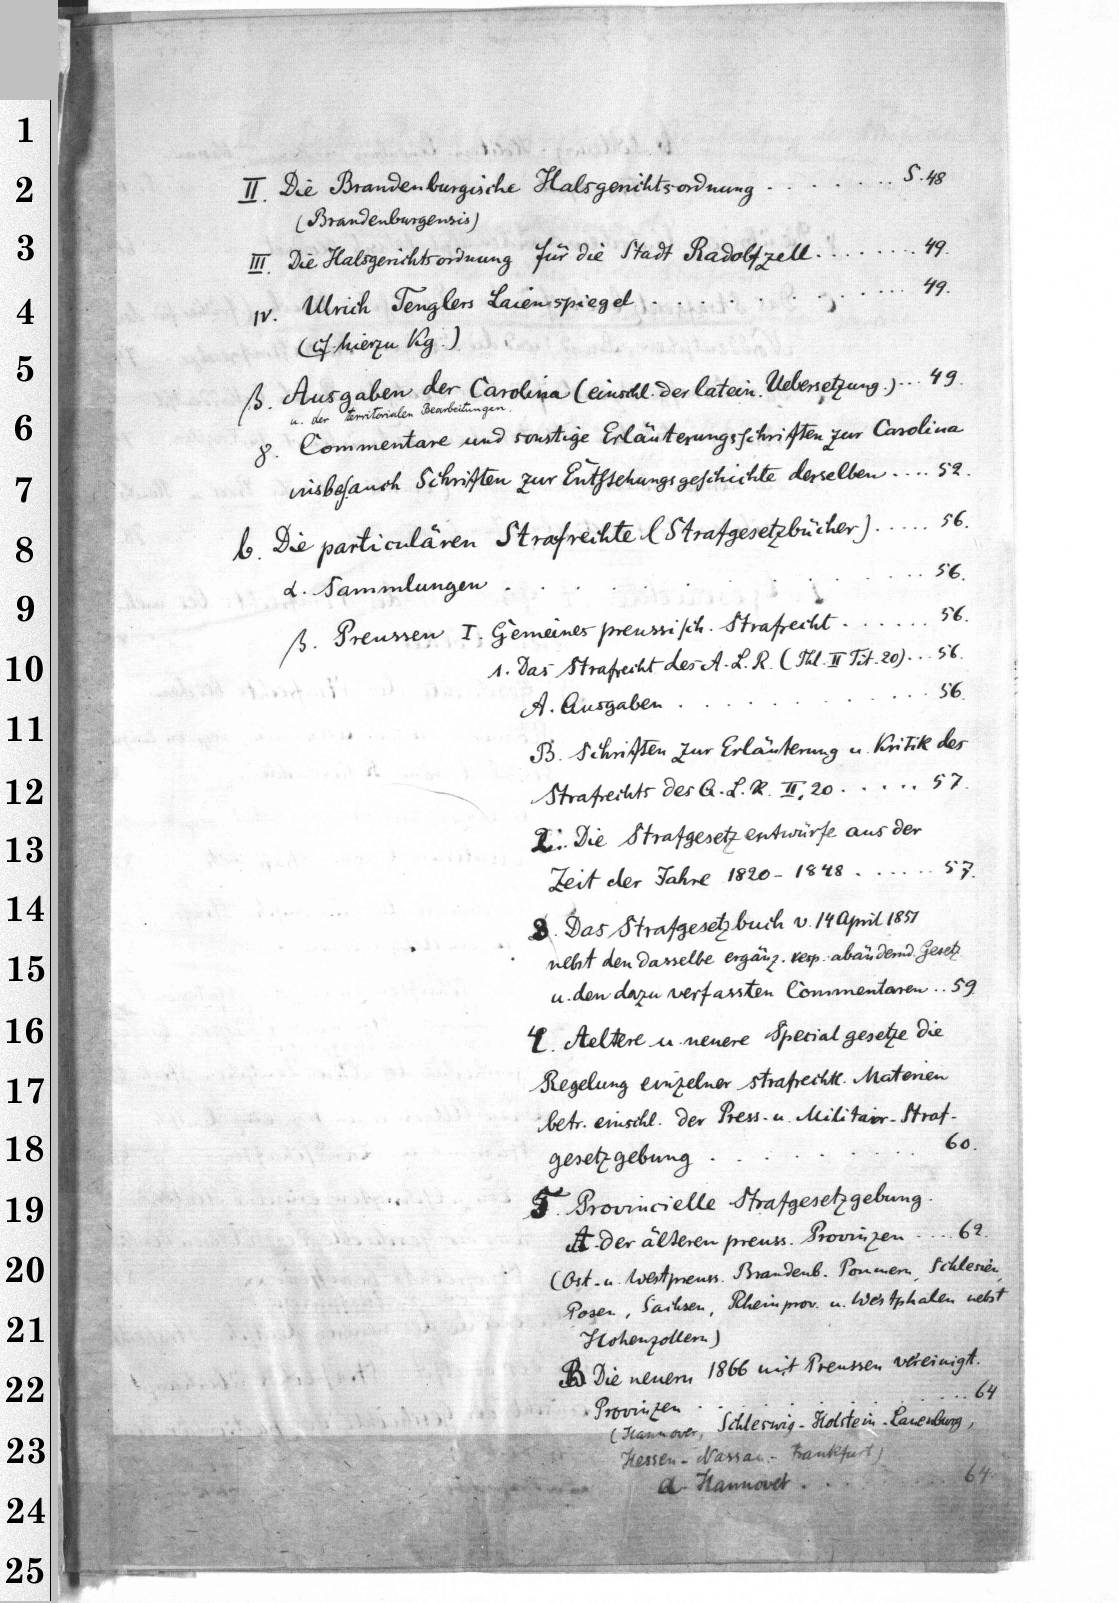 1
2
3
4
5
6
7
8
9
10
11
12
13
14
15
16
17
18
19
20
21
22
23
24
25
II. Die Brandenburgische Halsgerichtsordnung . . . . . . . . S. 48
(Brandenburgensis)
III. Die Halsgerichtsordnung für die Stadt Radolfzell . . . . . . . . 49.
IV. Ulrich Tenglers Laienspiegel . . . . . . . . . . . 49.
(cf. hierzu Kg.)
β. Ausgaben der Carolina (einschl. der latein. Uebersetzung.) ... 49.
u. der territorialen Bearbeitungen.
γ. Commentare und sonstige Erläuterungsschriften zur Carolina
insbes. auch Schriften zur Entstehungsgeschichte derselben .... 52.
b. Die particulären Strafrechte (Strafgesetzbücher) ..... 56.
α. Sammlungen . . . . . . . . . . . 56.
β. Preussen I. Gemeines preussisch. Strafrecht . . . . . . 56.
1. Das Strafrecht des A. L. R. (Thl. II Tit. 20) ... 56.
A. Ausgaben . . . . . . . . . . 56.
B. Schriften zur Erläuterung u. Kritik des
Strafrechts des A. L. R. II, 20 . . . . . . 57.
2. Die Strafgesetzentwürfe aus der
Zeit der Jahre 1820 - 1848 . . . . . . 57.
3. Das Strafgesetzbuch v. 14 April 1851
nebst den dasselbe ergänz. resp. abändernd. Gesetz
u. den dazu verfassten Commentaren .. 59
4. Aeltere u. neuere Specialgesetze die
Regelung einzelner strafrechtl. Materien
betr. einschl. der Press- u. Militair-Straf-
gesetzgebung . . . . . . . . . 60.
5. Provincielle Strafgesetzgebung.
A. der älteren preuss. Provinzen .... 62.
(Ost- u. Westpreuss. Brandenb. Pommern, Schlesien,
Posen, Sachsen, Rheinprov. u. Westphalen nebst
Hohenzollern)
B Die neuern 1866 mit Preussen vereinigt.
Provinzen . . . . . . . . . . . 64
(Hannover, Schleswig-Holstein-Lauenburg,
Hessen-Nassau-Frankfurt)
a. Hannover . . . . . . . . 64